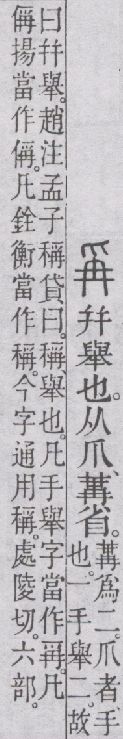 爯幷舉也。从爪、冓省。
冓爲二。爪者、手
也。一手舉二。故
曰幷舉。趙注孟子稱貸曰。稱、舉也。凡手舉字當作爯。凡
偁揚當作偁。凡銓衡當作稱。今字通用稱。處陵切。六部。